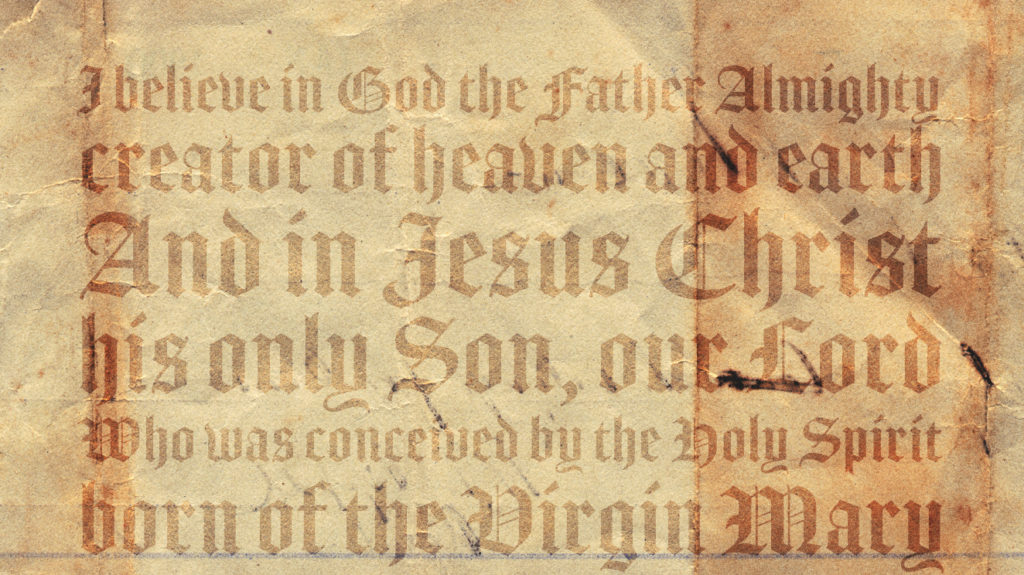 I believe in God the Father Almighty
creator of heaven and earth
And in Jesus Christ
his only Son, our Lord
Who was conceived by the Holy Spirit
born of the Virgin Mary